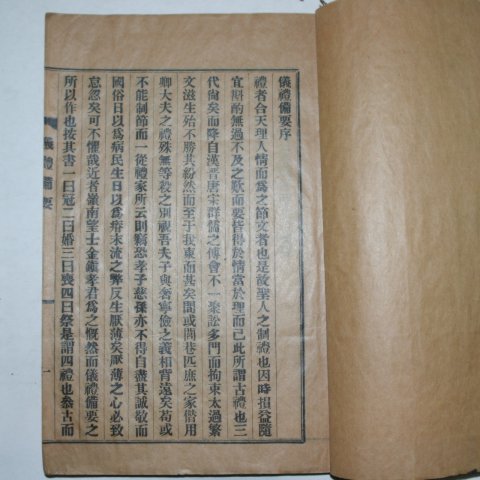 儀禮備要序
禮者合天理人情而爲之節文者也是故聖人之制禮也因時損益隨
宜斟酌無過不及之歎而要皆得於情當於理而已此所謂古禮也三
代尙矣而降自漢晋唐宋群儒之傅會不一聚訟多門而拘束太過繁
文滋生殆不勝其紛然而至于我東而甚矣閭或閭巷匹庶之家僭用
卿大夫之禮殊無等殺之別視吾夫子與奢寧儉之義相背遠矣苟或
不能制節而一從禮家所云則竊恐孝子慈孫亦不得自盡其誠敬而
國俗日以爲病民生日以爲瘠末流之弊反生厭薄矣厭薄之心必致
怠忽矣可不懼哉近者嶺南望士金鎭孝君爲之慨然而儀禮備要之
所以作也按其書一曰冠二曰婚三曰喪四曰祭是謂四禮也叅古而
儀禮備要
一